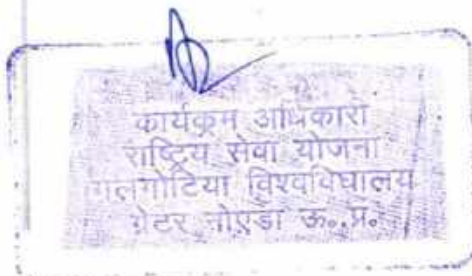 कार्यक्रम अधिकारी
राष्ट्रिय सेवा योजना
गलगोटिया विश्वविघालय
ग्रेटर नोएडा ऊ.,प्र.